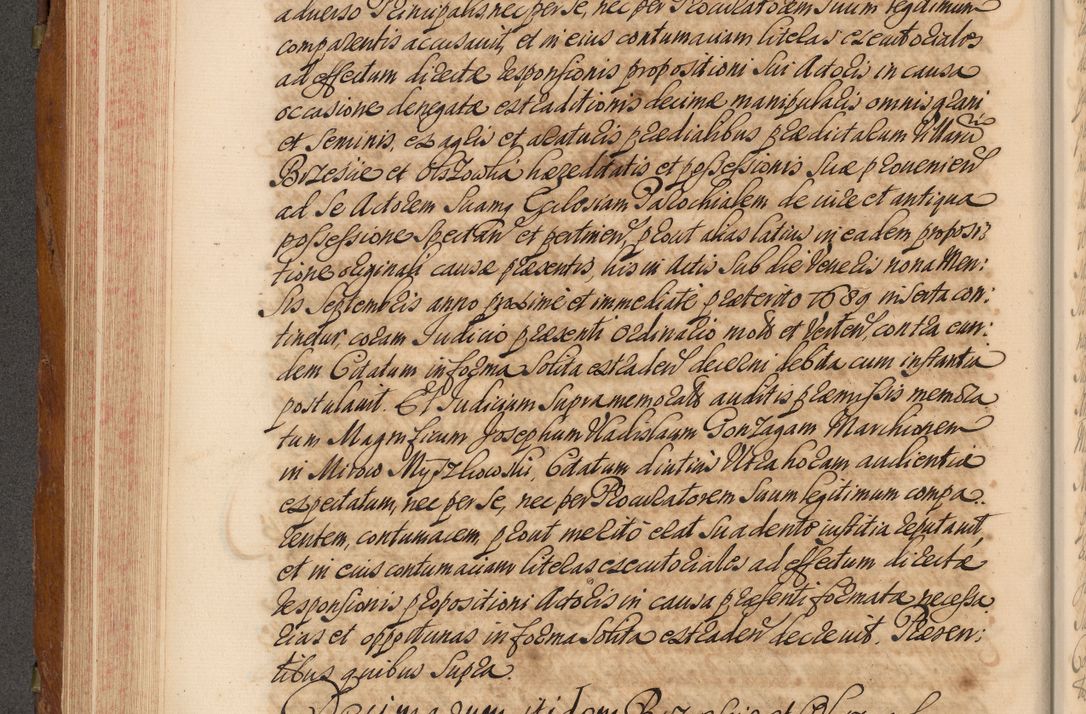 adverso Principalis, nec per se, nec per Procuratorem suum legitimum
comparentis accusavit, et in eius contumaciam literas executoriales
ad effectum directæ responsionis propositioni sui Actoris in causa
occasione denegatæ extraditionis decimæ manipularis omnis grani
et seminis, ex agris et araturis prædialibus prædictarum Villarum
Brzesie et Olszowka hæreditatis et possessionis suæ provenien
ad se Actorem suamq Ecclesiam Parochialem de iure et antiqua
possessione spectan et pertinen, prout alias latius in eadem proposi:
tione originali causæ præsentis, his in Actis sub die Veneris nona Men:
sis Septembris anno proxime et immediate præterito 1689 inserta con:
tinetur, coram Iudicio præsenti ordinario mot et verten, contra eun:
dem Citatum in forma solita extraden decerni debita cum instantia
postulavit. Et Iudicium supramemorat auditis præmissis memora
tum Magnificum Josephum Wladislaum Gonzagam Marchionem
in Mirow Myszkowski, Citatum diutius ultra horam audientiæ
expectatum, nec per se, nec per Procuratorem suum legitimum compa
rentem, contumacem, prout merito erat suadente iustitia reputavit,
et in eius contumaciam literas executoriales ad effectum directæ
responsionis propositioni Actoris in causa præsenti formatæ necessa
rias et opportunas in forma solita extraden decrevit. Præsen:
tibus quibus supra.